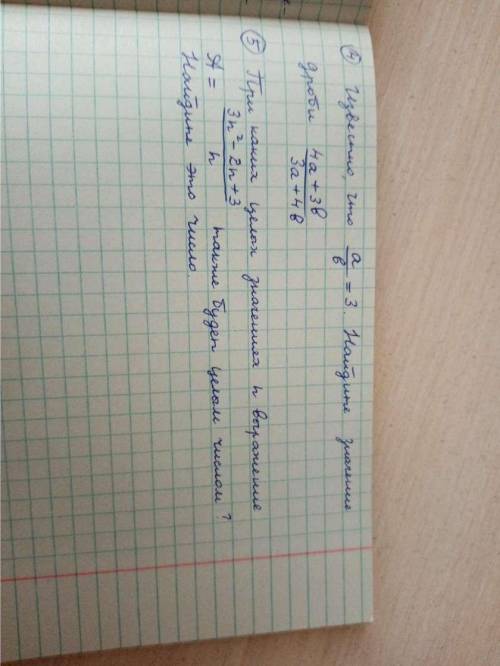 ④ Известно, что a/в = 3. Найдите значение
дроби (4a + 3в)/(3a + 4в)
⑤ При каких целых значениях n выражение
A = (3n² - 2n + 3)/n также будет целым числом?
Найдите это число.